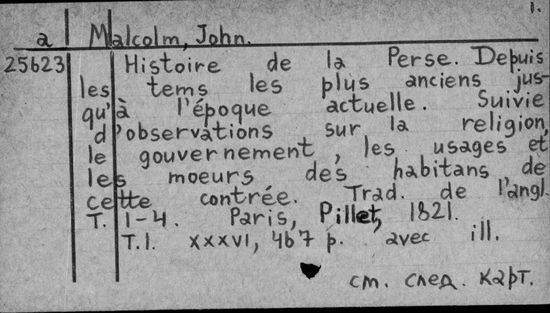 1.
a Malcolm, John.
25623 Histoire de la Perse. Depuis
les tems les plus anciens jus-
qu'à l'époque actuelle. Suivie
d'observations sur la religion,
le gouvernement, les usages et
les moeurs des habitans de
cette contrée. Trad. de l'angl.
T. 1-4. Paris, Pillet, 1821.
T.1. XXXVI, 467 p. avec ill.
см. след. карт.